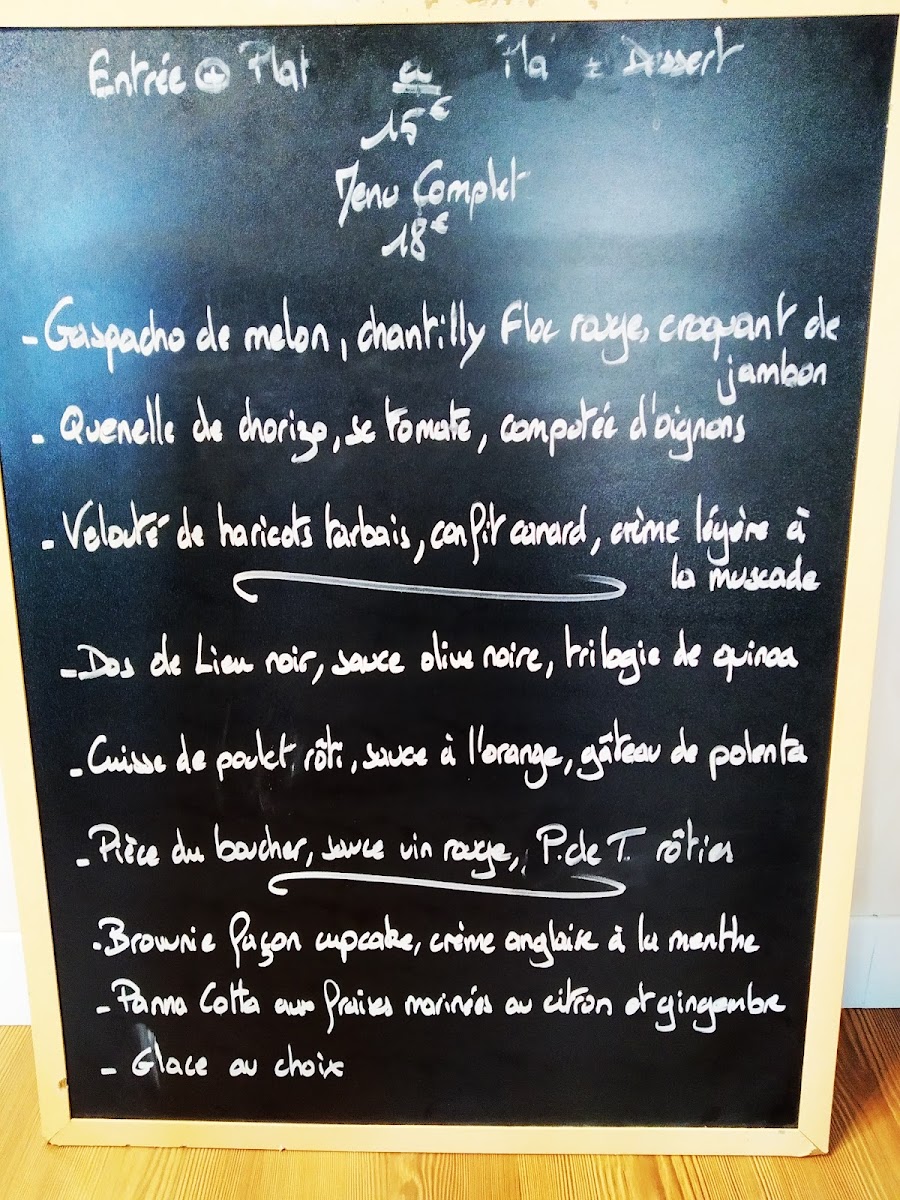 Entrée + Plat ou Plat + Dessert
15€
Menu Complet
18€
- Gaspacho de melon, chantilly Floc rouge, croquant de
jambon
- Quenelle de chorizo, se tomate, compotée d'oignons
- Velouté de haricots tarbais, confit canard, crème légère à
la muscade
- Dos de Lieu noir, sauce olive noire, trilogie de quinoa
- Cuisse de poulet rôti, sauce à l'orange, gâteau de polenta
- Pièce du boucher, sauce vin rouge, P.de T. rôties
- Brownie façon cupcake, crème anglaise à la menthe
- Panna Cotta aux fraises marinées au citron et gingembre
- Glace au choix